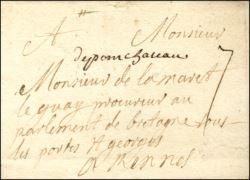 A Monsieur
deponchateau
Monsieur de la maret
le quay procureur au
parlement de bretagne sous
les portes St georges
a Rennes
7